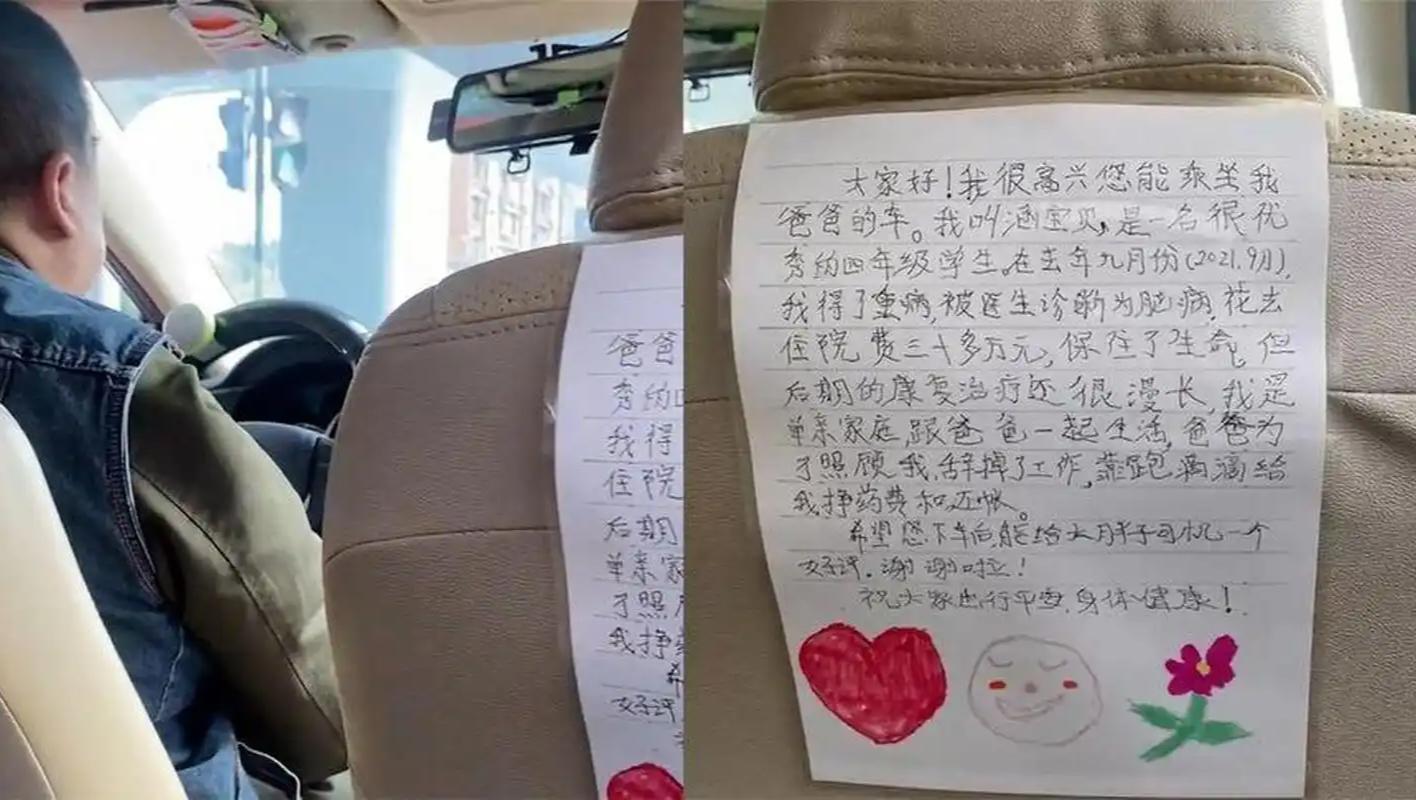 爸爸
秀的
我得
住院
后期
单亲家
了照
我挣
希
好评
大家好！我很高兴您能乘坐我
爸爸的车。我叫涵宝贝,是一名很优
秀的四年级学生。在去年九月份(2021.9月),
我得了重病,被医生诊断为脑病,花去
住院费三十多万元,保住了生命。但
后期的康复治疗还很漫长,我是
单亲家庭,跟爸爸一起生活,爸爸为
了照顾我,辞掉了工作,靠跑滴滴给
我挣药费和还帐。
希望您下车后,能给大胖子司机一个
好评。谢谢啦！
祝大家出行平安,身体健康！